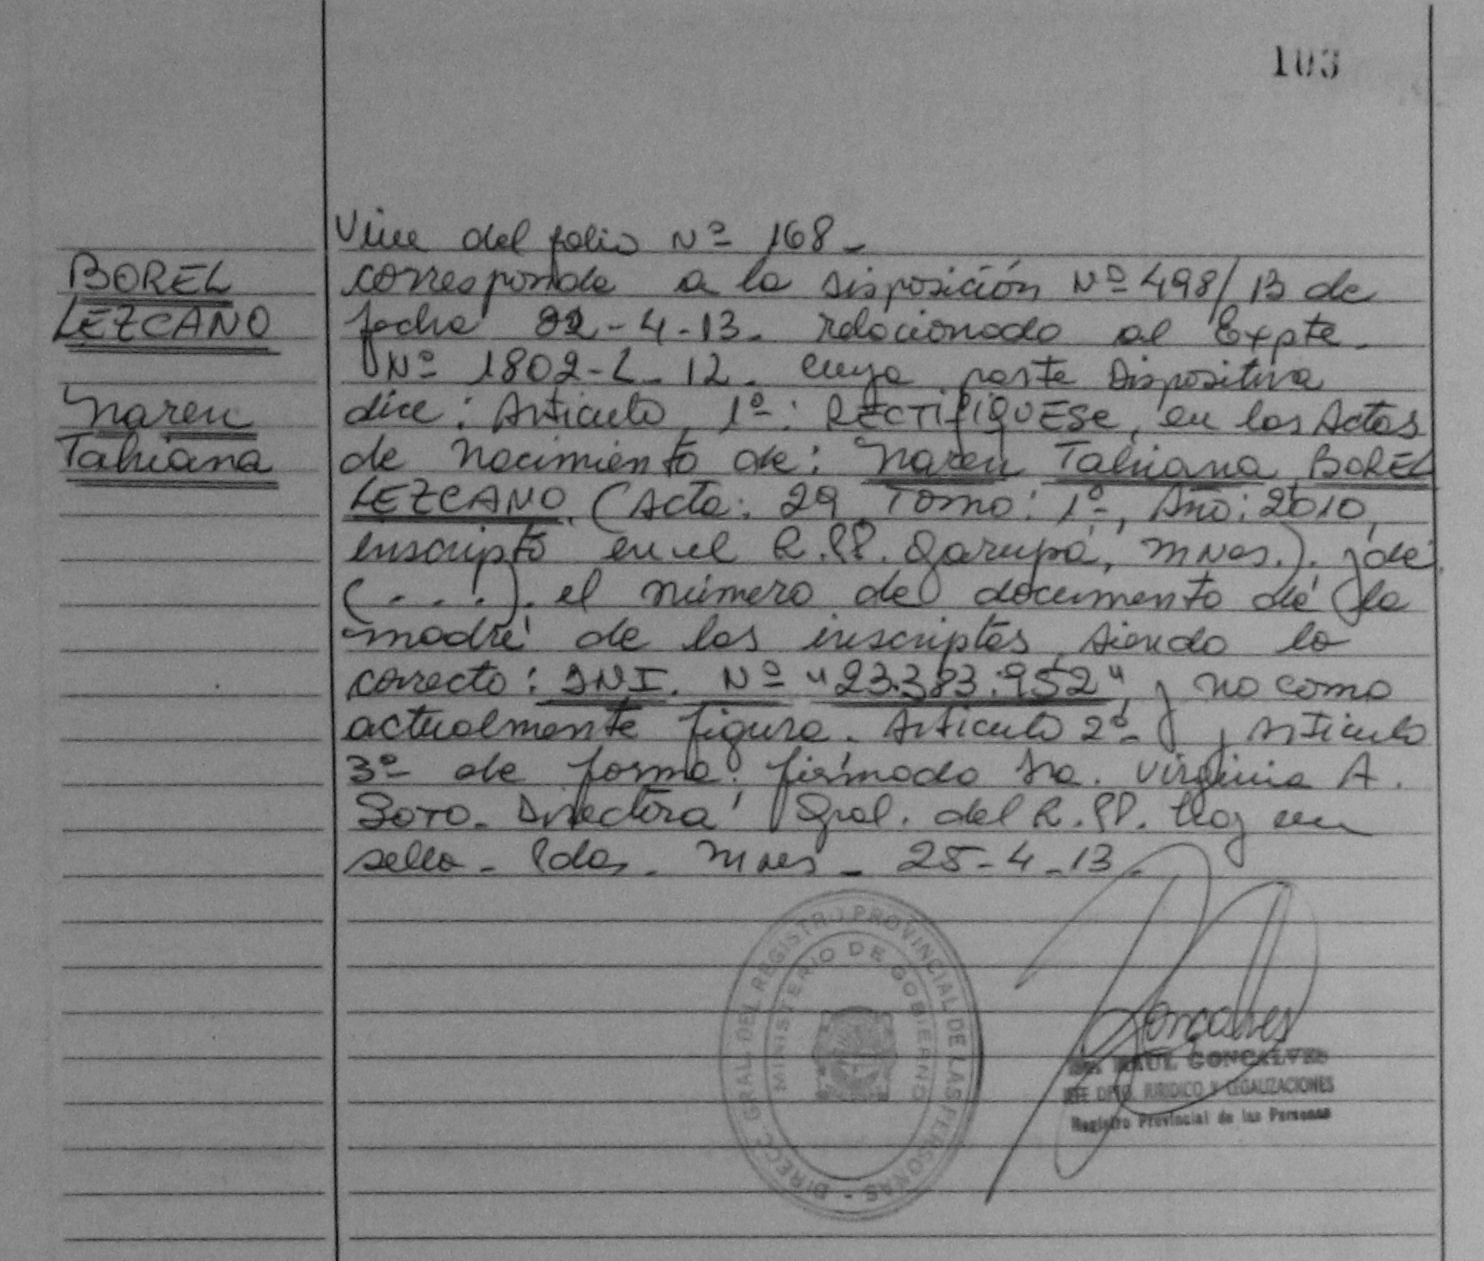 103
Viene del folio Nº 168-
BOREL
LEZCANO
Naren
Tahiana
corresponde a la disposición Nº 498/13 de
fecha 22-4-13. relacionado al Expte.
Nº 1802-L-12. cuya parte Dispositiva
dice: Artículo 1º: RECTIFIQUESE, en las Actas
de Nacimiento de: Naren Tahiana BOREL
LEZCANO (Acta: 29 Tomo: 1º, Año: 2010,
inscripto en el R.PP. Garupá, Mnes.). y de
(. . .). el número de documento de la
madre de los inscriptos, siendo lo
correcto: DNI. Nº "23.383.952" y no como
actualmente figura. Artículo 2º y Artículo
3º de forma. firmado Sra. Virginia A.
Soto. Directora Gral. del R.PP. Hay un
sello. Pdas. Mnes. 25-4-13.
DIRECC. GRAL. DEL REGISTRO PROVINCIAL DE LAS PERSONAS -
MINISTERIO DE GOBIERNO
Goncalves
Dr. RAUL GONCALVES
JEFE DPTO. JURIDICO Y LEGALIZACIONES
Registro Provincial de las Personas